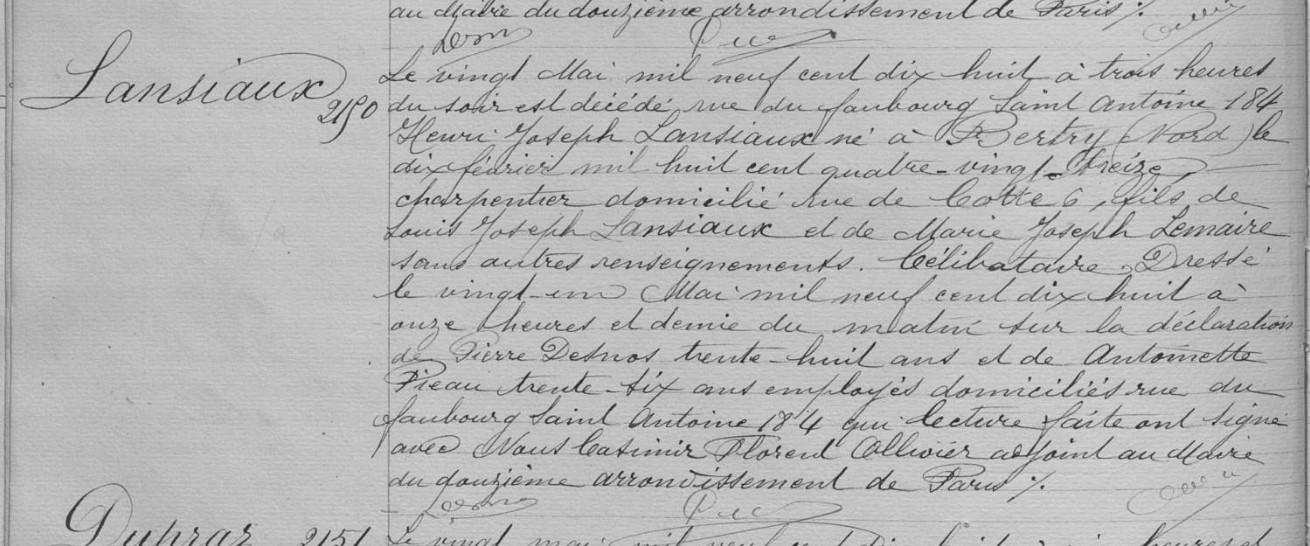 au Maire du douzième arrondissement de Paris ./.
Lansiaux
2150
Le vingt Mai mil neuf cent dix huit à trois heures
du soir est décédé rue du faubourg Saint Antoine 184
Henri Joseph Lansiaux né à Bertry (Nord) le
dix février mil huit cent quatre-vingt-treize,
charpentier domicilié rue de Cotte 6, fils de
Louis Joseph Lansiaux et de Marie Joseph Lemaire
sans autres renseignements. Célibataire. Dressé
le vingt-un Mai mil neuf cent dix huit à
onze heures et demie du matin sur la déclaration
de Pierre Desnos trente-huit ans et de Antoinette
Pieau trente-six ans employés domiciliés rue du
faubourg Saint Antoine 184 qui lecture faite ont signé
avec Nous Casimir Florent Ollivier adjoint au Maire
du douzième arrondissement de Paris ./.
Dupraz 2151
Le vingt mai mil neuf cent dix huit à heures et